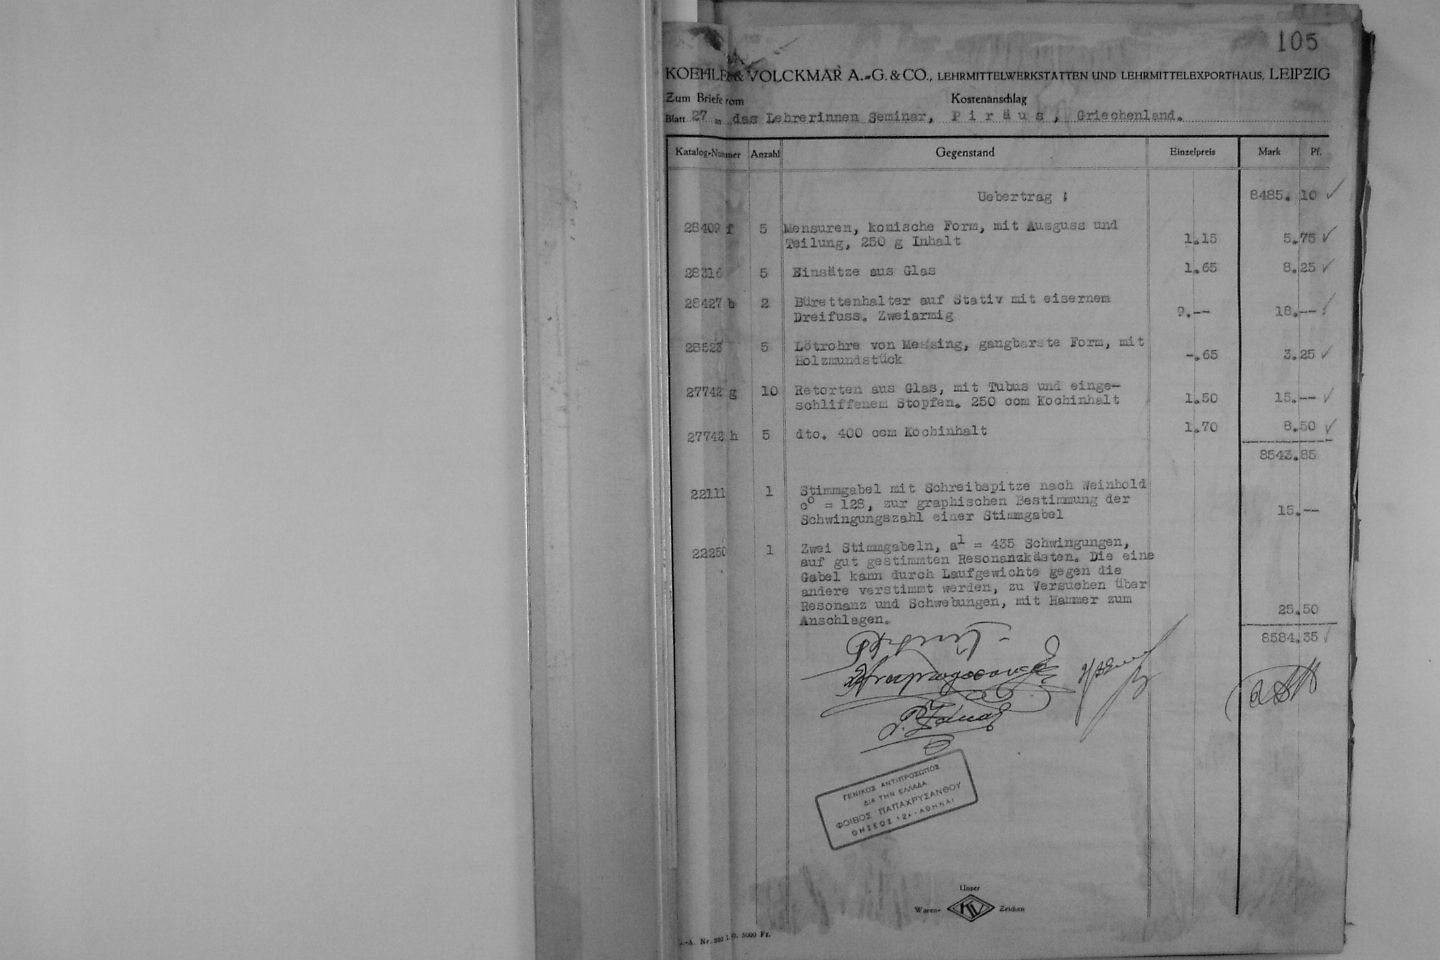 105
KOEHLER & VOLCKMAR A.-G. & CO., LEHRMITTELWERKSTÄTTEN UND LEHRMITTELEXPORTHAUS, LEIPZIG
Zum Briefe vom Kostenanschlag
Blatt 27 an das Lehrerinnen Seminar, P i r ä u s , Griechenland.
Katalog-Nummer Anzahl Gegenstand Einzelpreis Mark Pf.
Uebertrag : 8485. 10
28409 f 5 Mensuren, konische Form, mit Ausguss und
Teilung, 250 g Inhalt 1.15 5.75
28316 5 Einsätze aus Glas 1.65 8.25
28427 b 2 Bürettenhalter auf Stativ mit eisernem
Dreifuss. Zweiarmig 9.-- 18.--
28523 5 Lötrohre von Messing, gangbarste Form, mit
Holzmundstück -.65 3.25
27742 g 10 Retorten aus Glas, mit Tubus und einge-
schliffenem Stopfen. 250 ccm Kochinhalt 1.50 15.--
27742 h 5 dto. 400 ccm Kochinhalt 1.70 8.50
8543.85
22111 1 Stimmgabel mit Schreibspitze nach Weinhold
c⁰ = 128, zur graphischen Bestimmung der
Schwingungszahl einer Stimmgabel 15.--
22250 1 Zwei Stimmgabeln, a¹ = 435 Schwingungen,
auf gut gestimmten Resonanzkästen. Die eine
Gabel kann durch Laufgewichte gegen die
andere verstimmt werden, zu Versuchen über
Resonanz und Schwebungen, mit Hammer zum
Anschlagen. 25.50
8584.35
ΓΕΝΙΚΟΣ ΑΝΤΙΠΡΟΣΩΠΟΣ
ΔΙΑ ΤΗΝ ΕΛΛΑΔΑ
ΦΟΙΒΟΣ ΠΑΠΑΧΡΥΣΑΝΘΟΥ
ΘΗΣΕΩΣ ΑΘΗΝΑΙ
Unser
Waren- KV Zeichen
Nr. 5000 Fr.